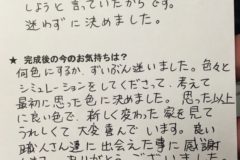 しようと言っていたからです。
迷わずに決めました。
★ 完成後の今のお気持ちは？
何色にするか、ずいぶん迷いました。色々と
シミュレーションをしてくださって、考えて
最初に思った色に決めました。思った以上
に良い色で、新しく変わった家を見て
うれしくて大変喜んでいます。良い
職人さん達に出会えた事に感謝